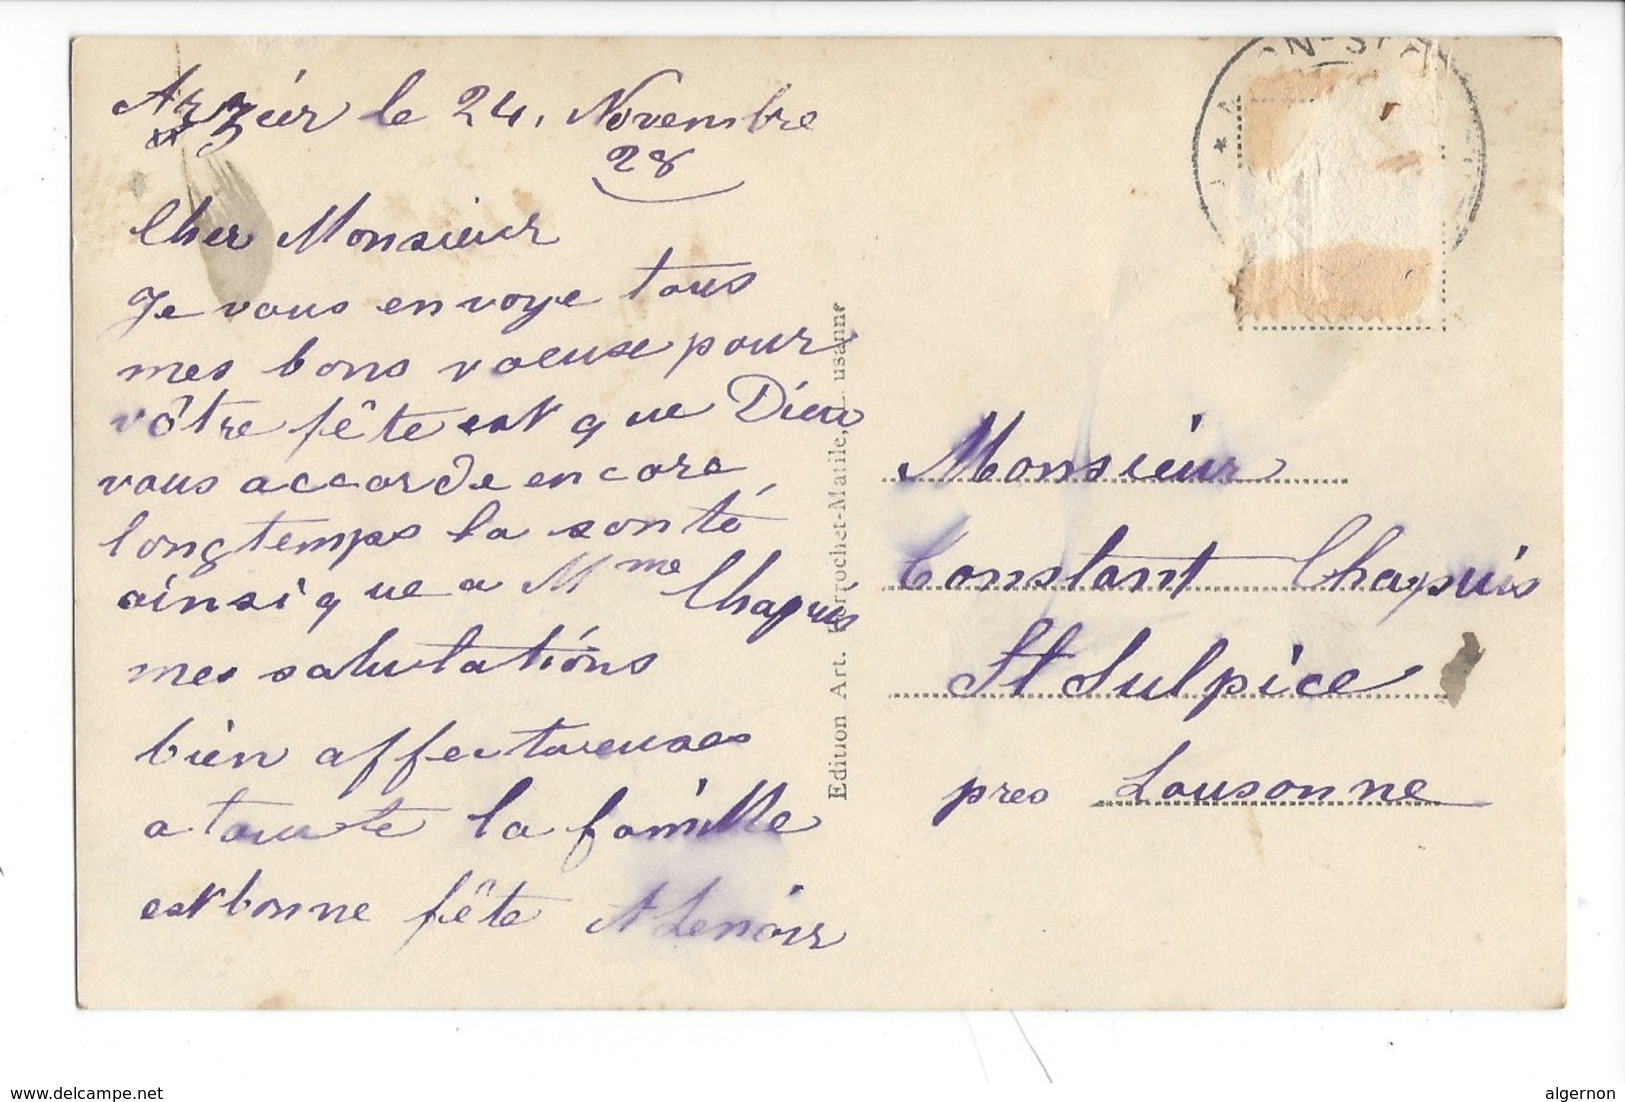 Arzier le 24, Novembre
28
Cher Monsieur
Je vous envoye tous
mes bons voeuse pour
vôtre fête est que Dieu
vous accorde encore
longtemps la santé
ainsi que a Mme Chapuis
mes salutations
bien affectueuses
a toute la famille
est bonne fête A Lenoir
Edition Art. Perrochet-Matile, Lausanne
Monsieur
Constant Chapuis
St Sulpice
pres Lausonne
www.delcampe.net
algernon